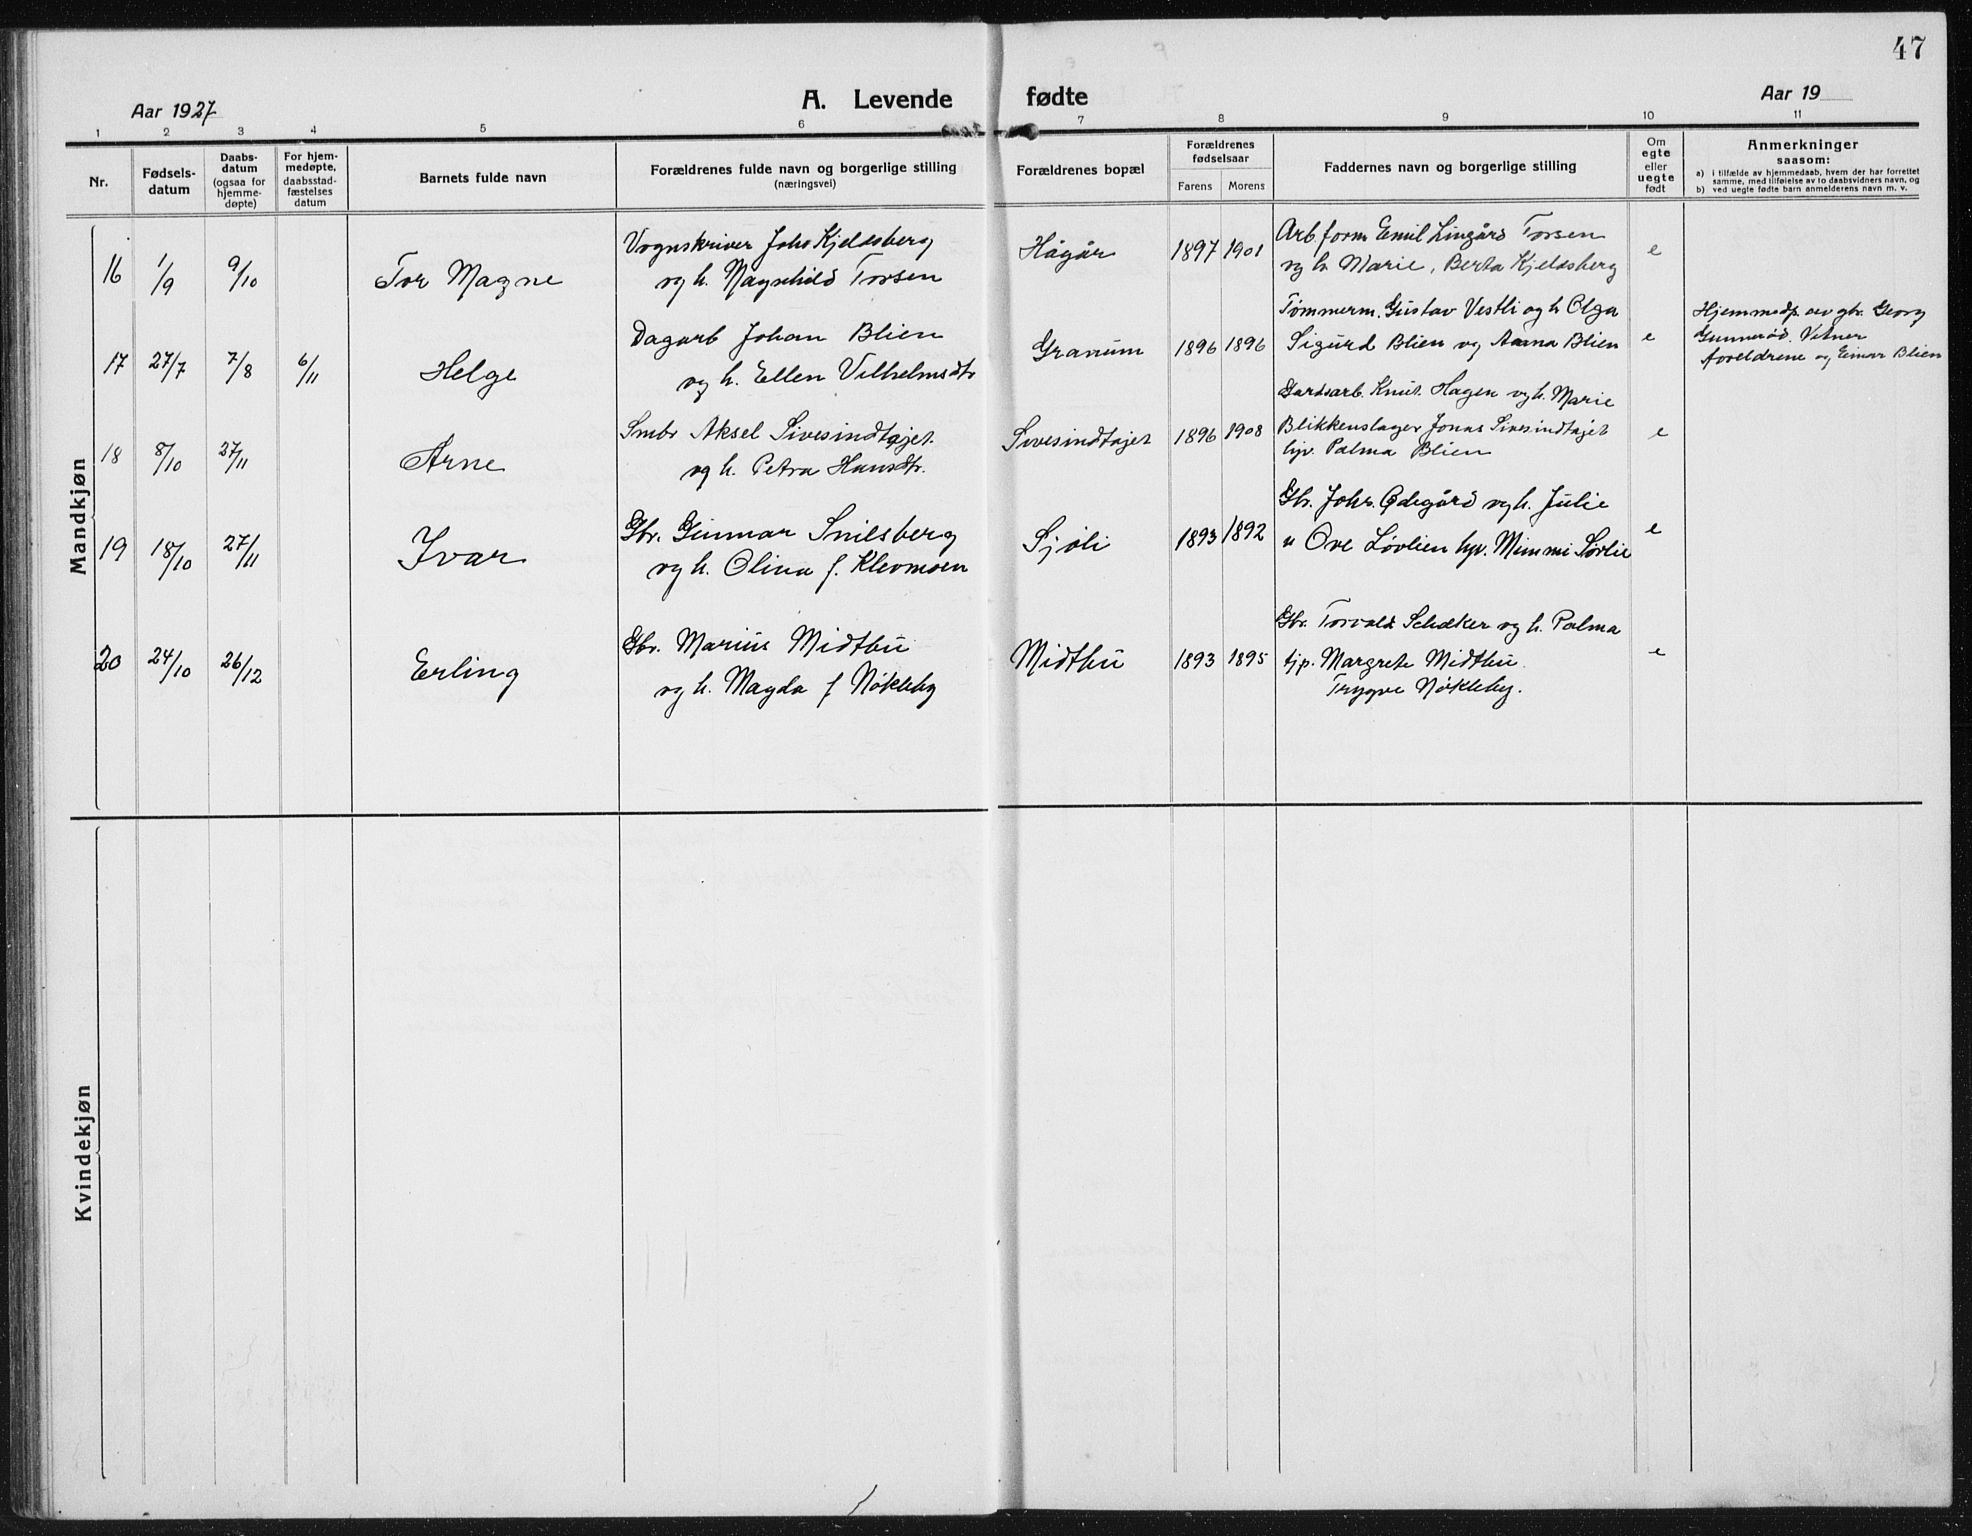 47
Aar 1927
A. Levende fødte
Aar 19
1 2 3 4 5 6 7 8 9 10 11
Nr.
Fødsels-
datum
Daabs-
datum
(ogsaa for
hjemme-
døpte)
For hjem-
medøpte,
daabsstad-
fæstelses
datum
Barnets fulde navn
Forældrenes fulde navn og borgerlige stilling
(næringsvei)
Forældrenes bopæl
Forældrenes
fødselsaar
Farens Morens
Faddernes navn og borgerlige stilling
Om
egte
eller
uegte
født
Anmerkninger
saasom:
a) i tilfælde av hjemmedaab, hvem der har forrettet
samme, med tilføielse av to daabsvidners navn, og
b) ved uegte fødte barn anmelderens navn m. v.
Mandkjøn
16 1/9 9/10 Tor Magne
Vognskriver Johs Kjeldsberg
og h. Magnhild Torsen
Hågår 1897 1901
Arb.form Emil Lingård Torsen
og h. Marie, Berta Kjeldsberg
e
17 27/7 7/8 6/11 Helge
Dagarb Johan Blien
og h. Ellen Vilhelmsdtr
Granum 1896 1896
Tømmerm. Gustav Vestli og h Olga
Sigurd Blien og Anna Blien
e
Hjemmedp. av gbr. Georg
Gunnerød. Vitner
forældrene og Einar Blien
18 8/10 27/11 Arne
Smbr Aksel Sivesindtajet
og h. Petra Hansdtr.
Sivesindtajet 1896 1908
Gardsarb. Knut Hagen og h. Marie
Blikkenslager Jonas Sivesindtajet
hpv. Palma Blien
e
19 18/10 27/11 Ivar
Gbr. Gunnar Snilsberg
og h. Olina f. Klevmoen
Sjøli 1893 1892
Gbr. Johs. Ødegård og h. Julie
" Ove Løvlien hpv. Mimmi Sørlie
e
20 24/10 26/12 Erling
Gbr. Marius Midtbu
og h. Magda f Nøkleby
Midtbu 1893 1895
Gbr. Torvald Schæker og h. Palma
tjp. Margrete Midtbu
Trygve Nøkleby.
e
Kvindekjøn